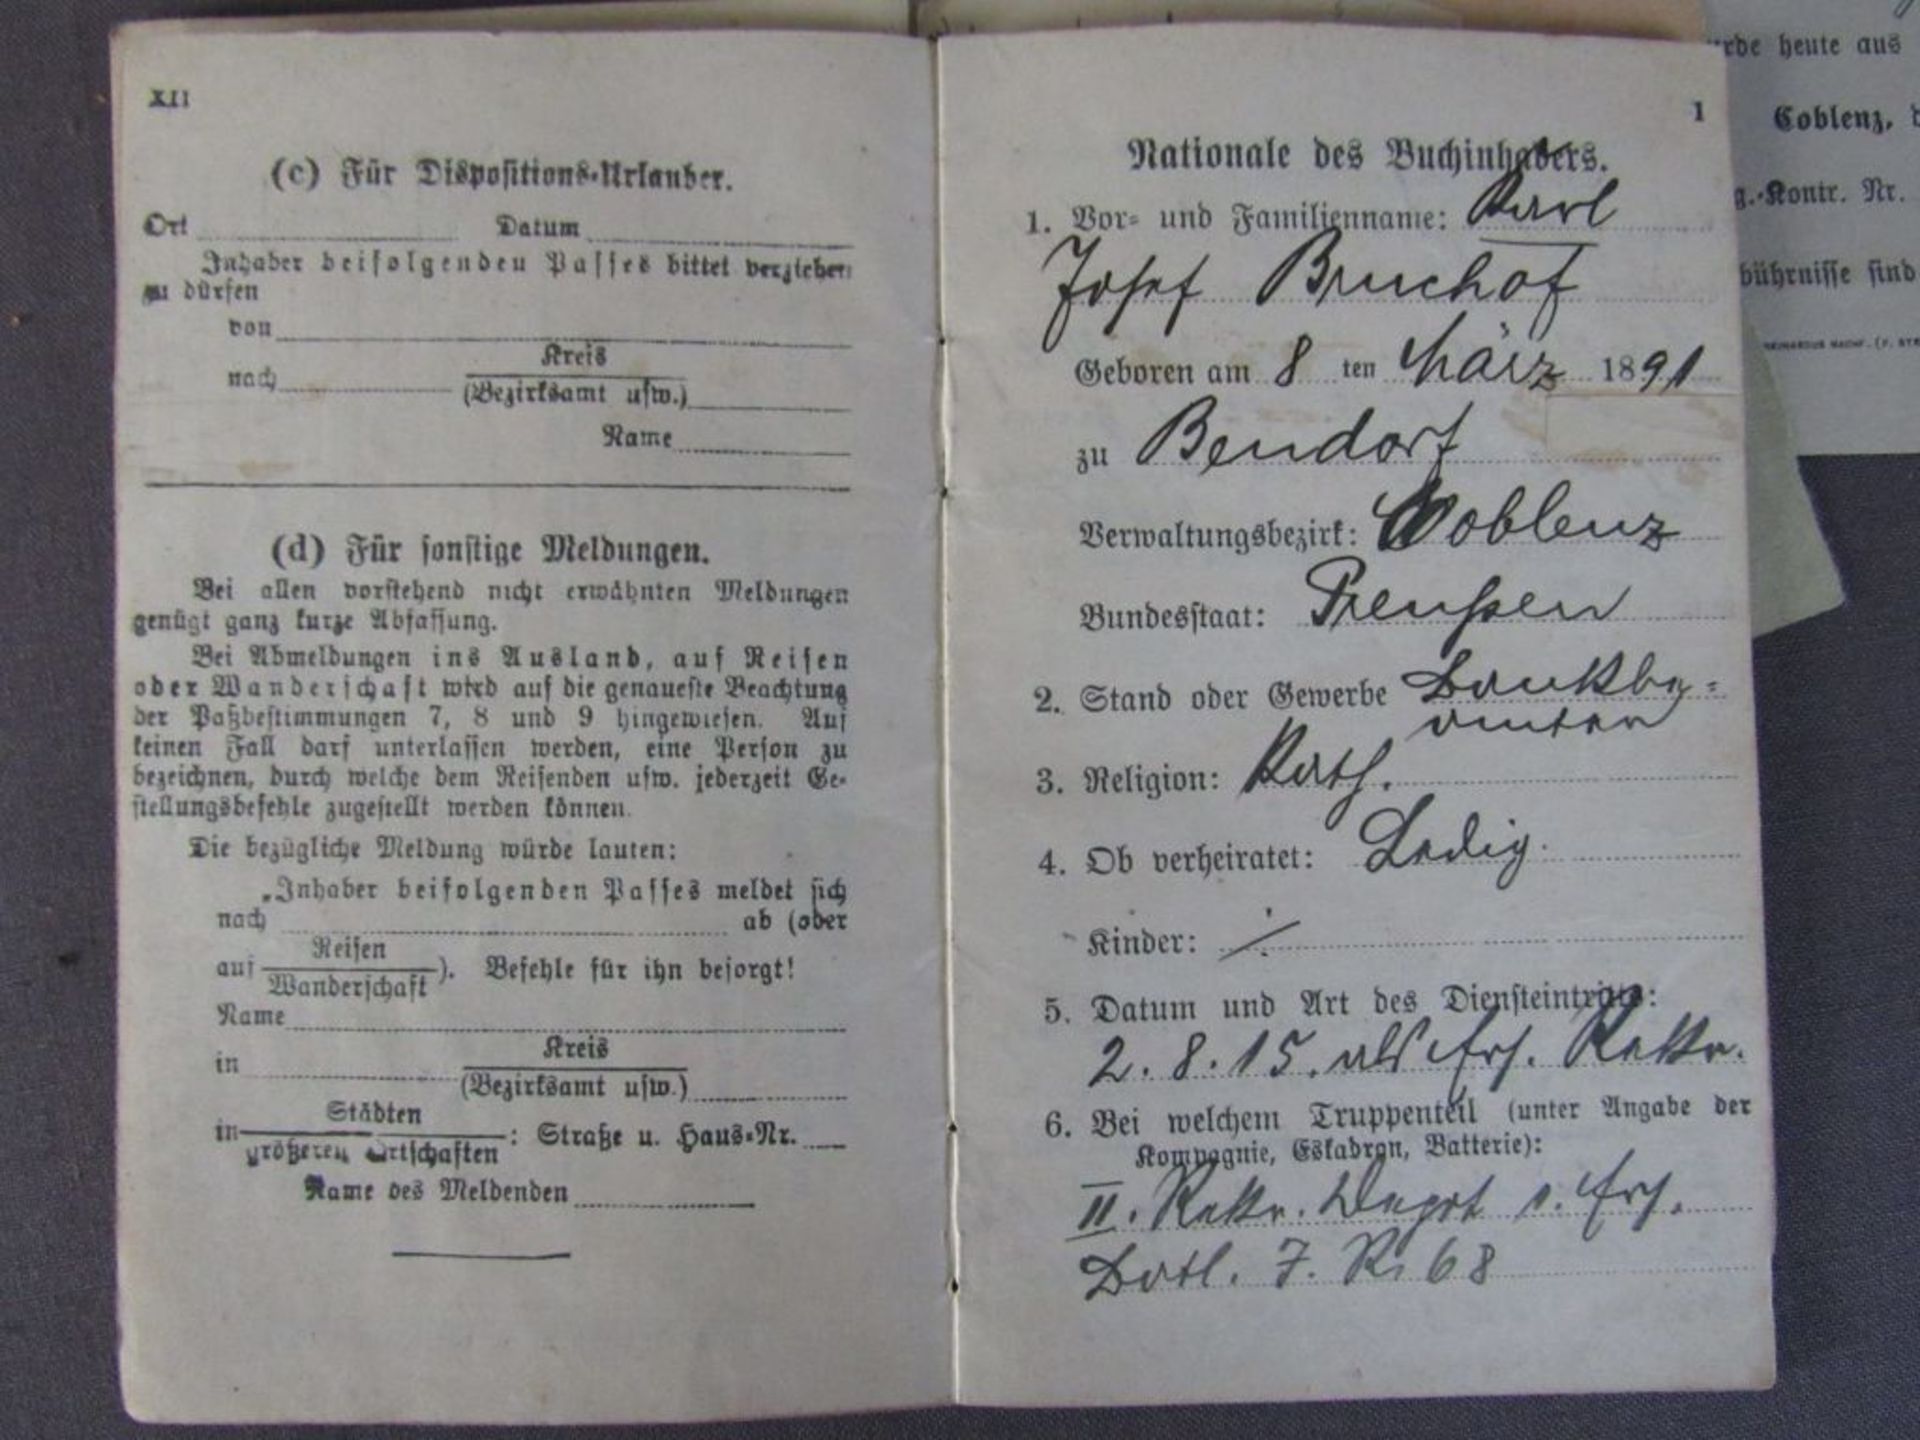 XII
(c) Für Dispositions-Urlauber.
Ort Datum
Inhaber beifolgenden Passes bittet verziehen
zu dürfen
von
nach Kreis
(Bezirksamt usw.)
Name
(d) Für sonstige Meldungen.
Bei allen vorstehend nicht erwähnten Meldungen
genügt ganz kurze Abfassung.
Bei Abmeldungen ins Ausland, auf Reisen
oder Wanderschaft wird auf die genaueste Beachtung
der Paßbestimmungen 7, 8 und 9 hingewiesen. Auf
keinen Fall darf unterlassen werden, eine Person zu
bezeichnen, durch welche dem Reisenden usw. jederzeit Ge-
stellungsbefehle zugestellt werden können.
Die bezügliche Meldung würde lauten:
„Inhaber beifolgenden Passes meldet sich
nach ab (oder
Reisen
auf ). Befehle für ihn besorgt!
Wanderschaft
Name
in Kreis
(Bezirksamt usw.)
Städten
in : Straße u. Haus-Nr.
größeren Ortschaften
Name des Meldenden
1
Nationale des Buchinhabers.
1. Vor- und Familienname: Karl
Josef Bruchof
Geboren am 8 ten März 1891
zu Bendorf
Verwaltungsbezirk: Coblenz
Bundesstaat: Preußen
2. Stand oder Gewerbe Bankbe-
amter
3. Religion: Kath.
4. Ob verheiratet: Ledig.
Kinder: ./.
5. Datum und Art des Diensteintritts:
2. 8. 15. als Ers. Rekr.
6. Bei welchem Truppenteil (unter Angabe der
Kompagnie, Eskadron, Batterie):
II. Rekr. Depot d. Ers.
Batl. J. R. 68
rde heute aus
Coblenz, d
g.-Kontr. Nr.
bührnisse sind